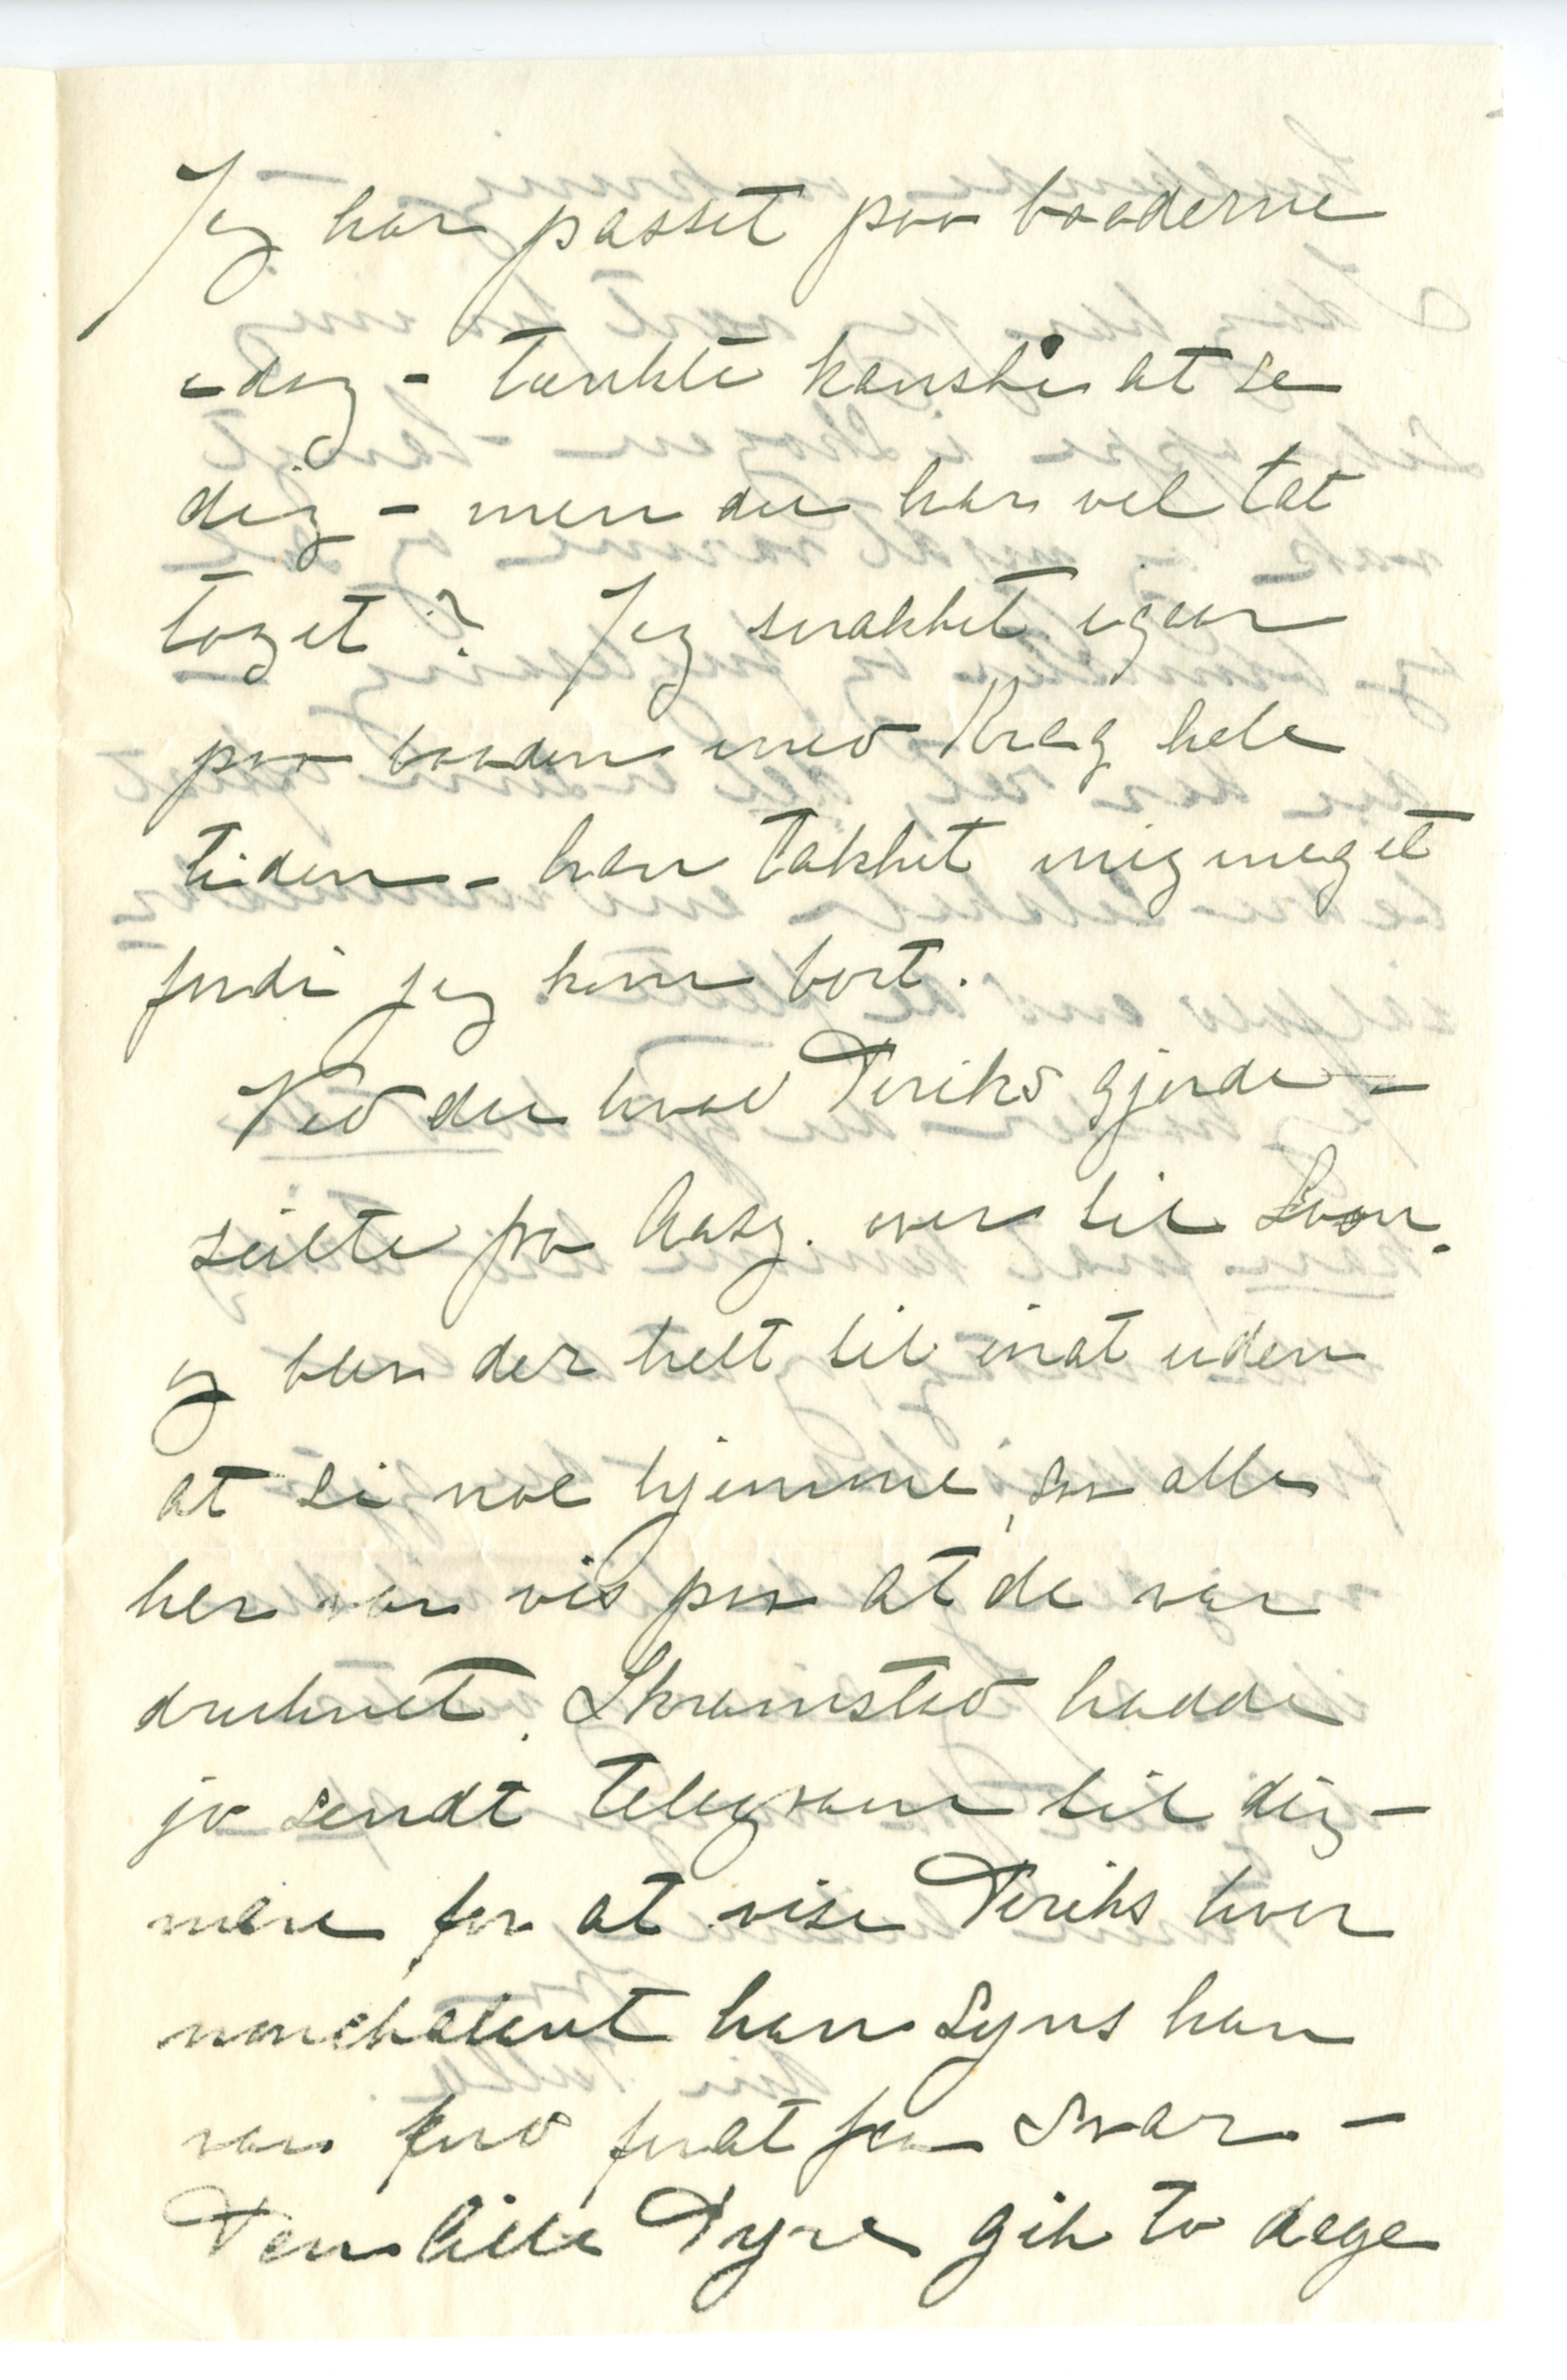 Jeg har passet paa baaderne
idag - tænkte kanske at se
dig - men du har vel tat
toget? Jeg snakket igaar
paa baaden med Krag hele
tiden - han takket mig meget
fordi jeg kom bort.
Ved du hvad Diriks gjorde -
seilte fra Aasg. over til Svon.
og blev der helt til inat uden
at si noe hjemme, saa alle
her var vis paa at de var
druknet. Skramstad hadde
jo sendt telegram til dig -
mere for at vise Diriks hvor
nonchalent han syns han
var end forat faa svar -
Den lille Dyre gik to dage